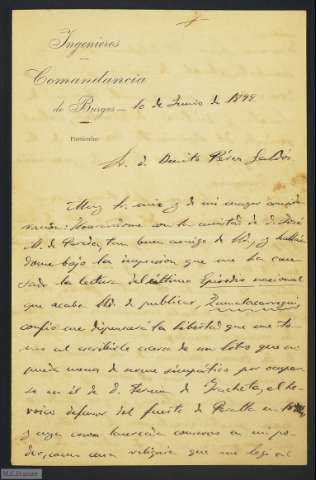 Ingenieros
Comandancia
de Burgos 10 de Junio de 1898.
Particular
Sr. D. Benito Pérez Galdós
Muy Sr. mio y de mi mayor conside
ración: Honrandome con la amistad de D. José
M. de Pereda, tan buen amigo de Vd., y hallan
dome bajo la impresion que me ha cau
sado la lectura del último Episodio nacional
que acaba Vd. de publicar, Zumalacarregui,
confio me dispensará la libertad que me to
mo al escribirle acerca de un libro que no
puede menos de serme simpatico por ocupar
se en él de D. Fermin de, el he
roico defensor del fuerte de en
y cuya conservo en mi po
der, como una reliquia que me legó mi